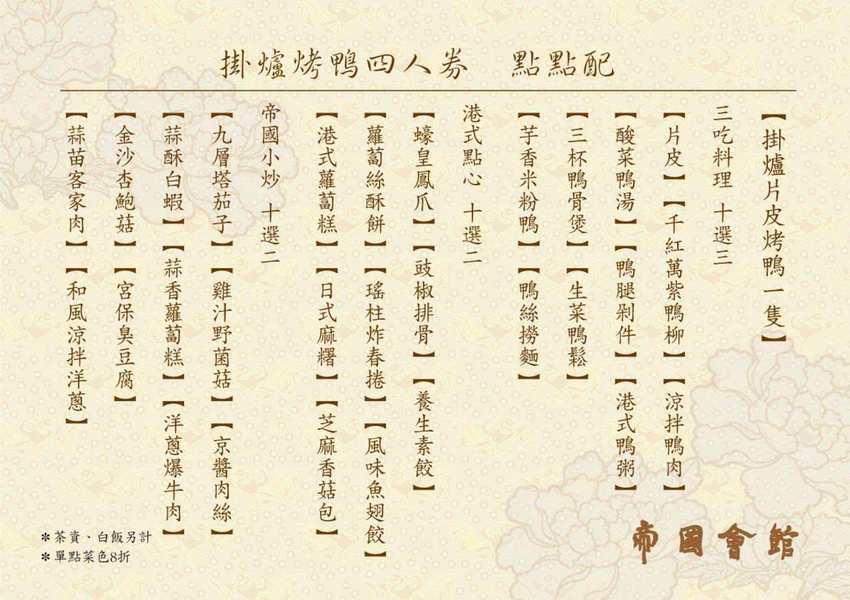 掛爐烤鴨四人券 點點配
【掛爐片皮烤鴨一隻】
三吃料理 十選三
【片皮】【千紅萬紫鴨柳】【涼拌鴨肉】
【酸菜鴨湯】【鴨腿剁件】【港式鴨粥】
【三杯鴨骨煲】【生菜鴨鬆】
【芋香米粉鴨】【鴨絲撈麵】
港式點心 十選二
【蠔皇鳳爪】【豉椒排骨】【養生素餃】
【蘿蔔絲酥餅】【瑤柱炸春捲】【風味魚翅餃】
【港式蘿蔔糕】【日式麻糬】【芝麻香菇包】
帝國小炒 十選二
【九層塔茄子】【雞汁野菌菇】【京醬肉絲】
【蒜酥白蝦】【蒜香蘿蔔糕】【洋蔥爆牛肉】
【金沙杏鮑菇】【宮保臭豆腐】
【蒜苗客家肉】【和風涼拌洋蔥】
＊茶資、白飯另計
＊單點菜色8折
帝國會館